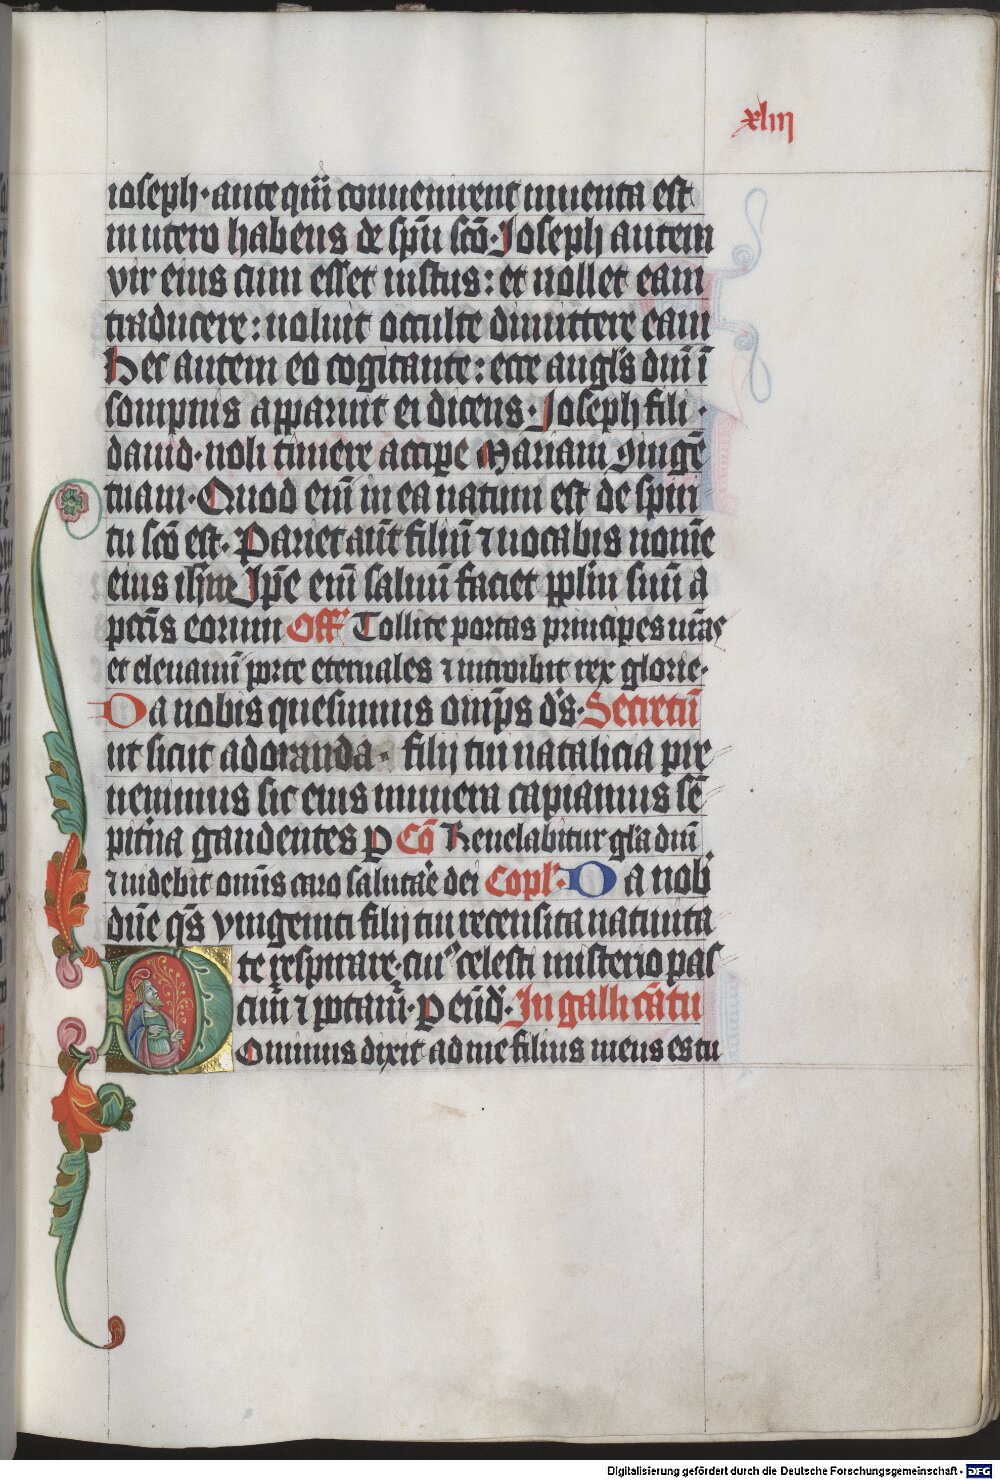 xliii
ioseph · ante qm̄ convenirent inventa est
in utero habens de spū scō · Joseph autem
vir eius cum esset iustus : et nollet eam
traducere : voluit occulte dimittere eam
Hec autem eo cogitante : ecce angl's dnī ī
sompnis apparuit ei dicens · Joseph fili ·
david · noli timere accipe Mariam ꝯiugē
tuam · Quod enī in ea natum est de spiri
tu scō est · Pariet aūt filiū ⁊ vocabis nomē
eius ihm Ipē enī salvū faciet ppl'm suū a
pctīs eorum Off Tollite portas principes vr̄as
et elevaminī porte eternales ⁊ introibit rex glorie ·
Da nobis quesumus omp̄s d's · Secretū
ut sicut adoranda · filij tui natalicia pre
venimus sic eius munera capiamus sē
pitn̄a gaudentes p Cō Revelabitur gl'a dnī
⁊ videbit om̄is caro salutar̄e dei Copl' · Da nob'
dn̄e q̄s vnigeniti filij tui recensita nativita
te respirare · cui' celesti misterio pas
cim̄ ⁊ potam̄ · p eūd' · In galli cātu
Dominus dixit ad me filius meus es tu
Digitalisierung gefördert durch die Deutsche Forschungsgemeinschaft - DFG